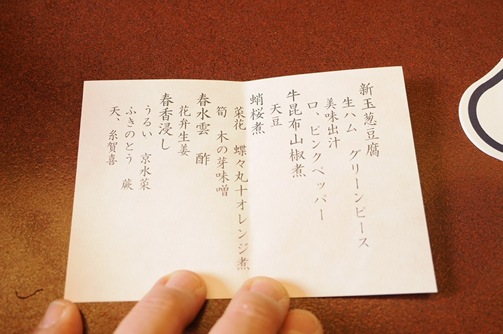 新玉葱豆腐
生ハム グリーンピース
美味出汁
ロ、ピンクペッパー
牛昆布山椒煮
天豆
蛸桜煮
菜花 蝶々丸十オレンジ煮
筍 木の芽味噌
春水雲 酢
花弁生姜
春香浸し
うるい 京水菜
ふきのとう 蕨
天、糸賀喜